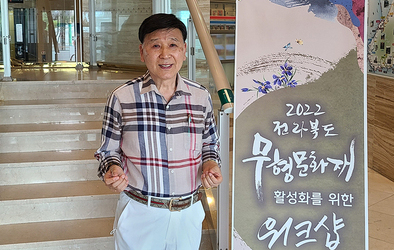 2022
전라북도
무형문화재
활성화를 위한
워크샵